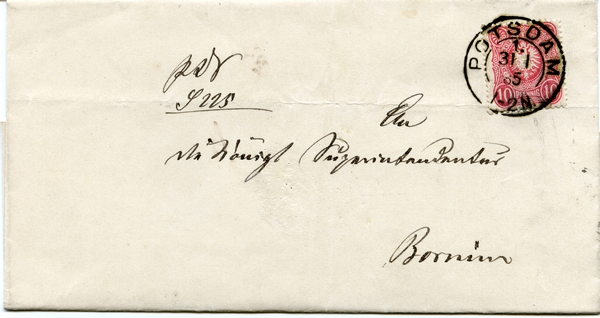 POTSDAM
1.
31 1
85
1-2N.
10 10
An
die Königl Superintendentur
Bornim